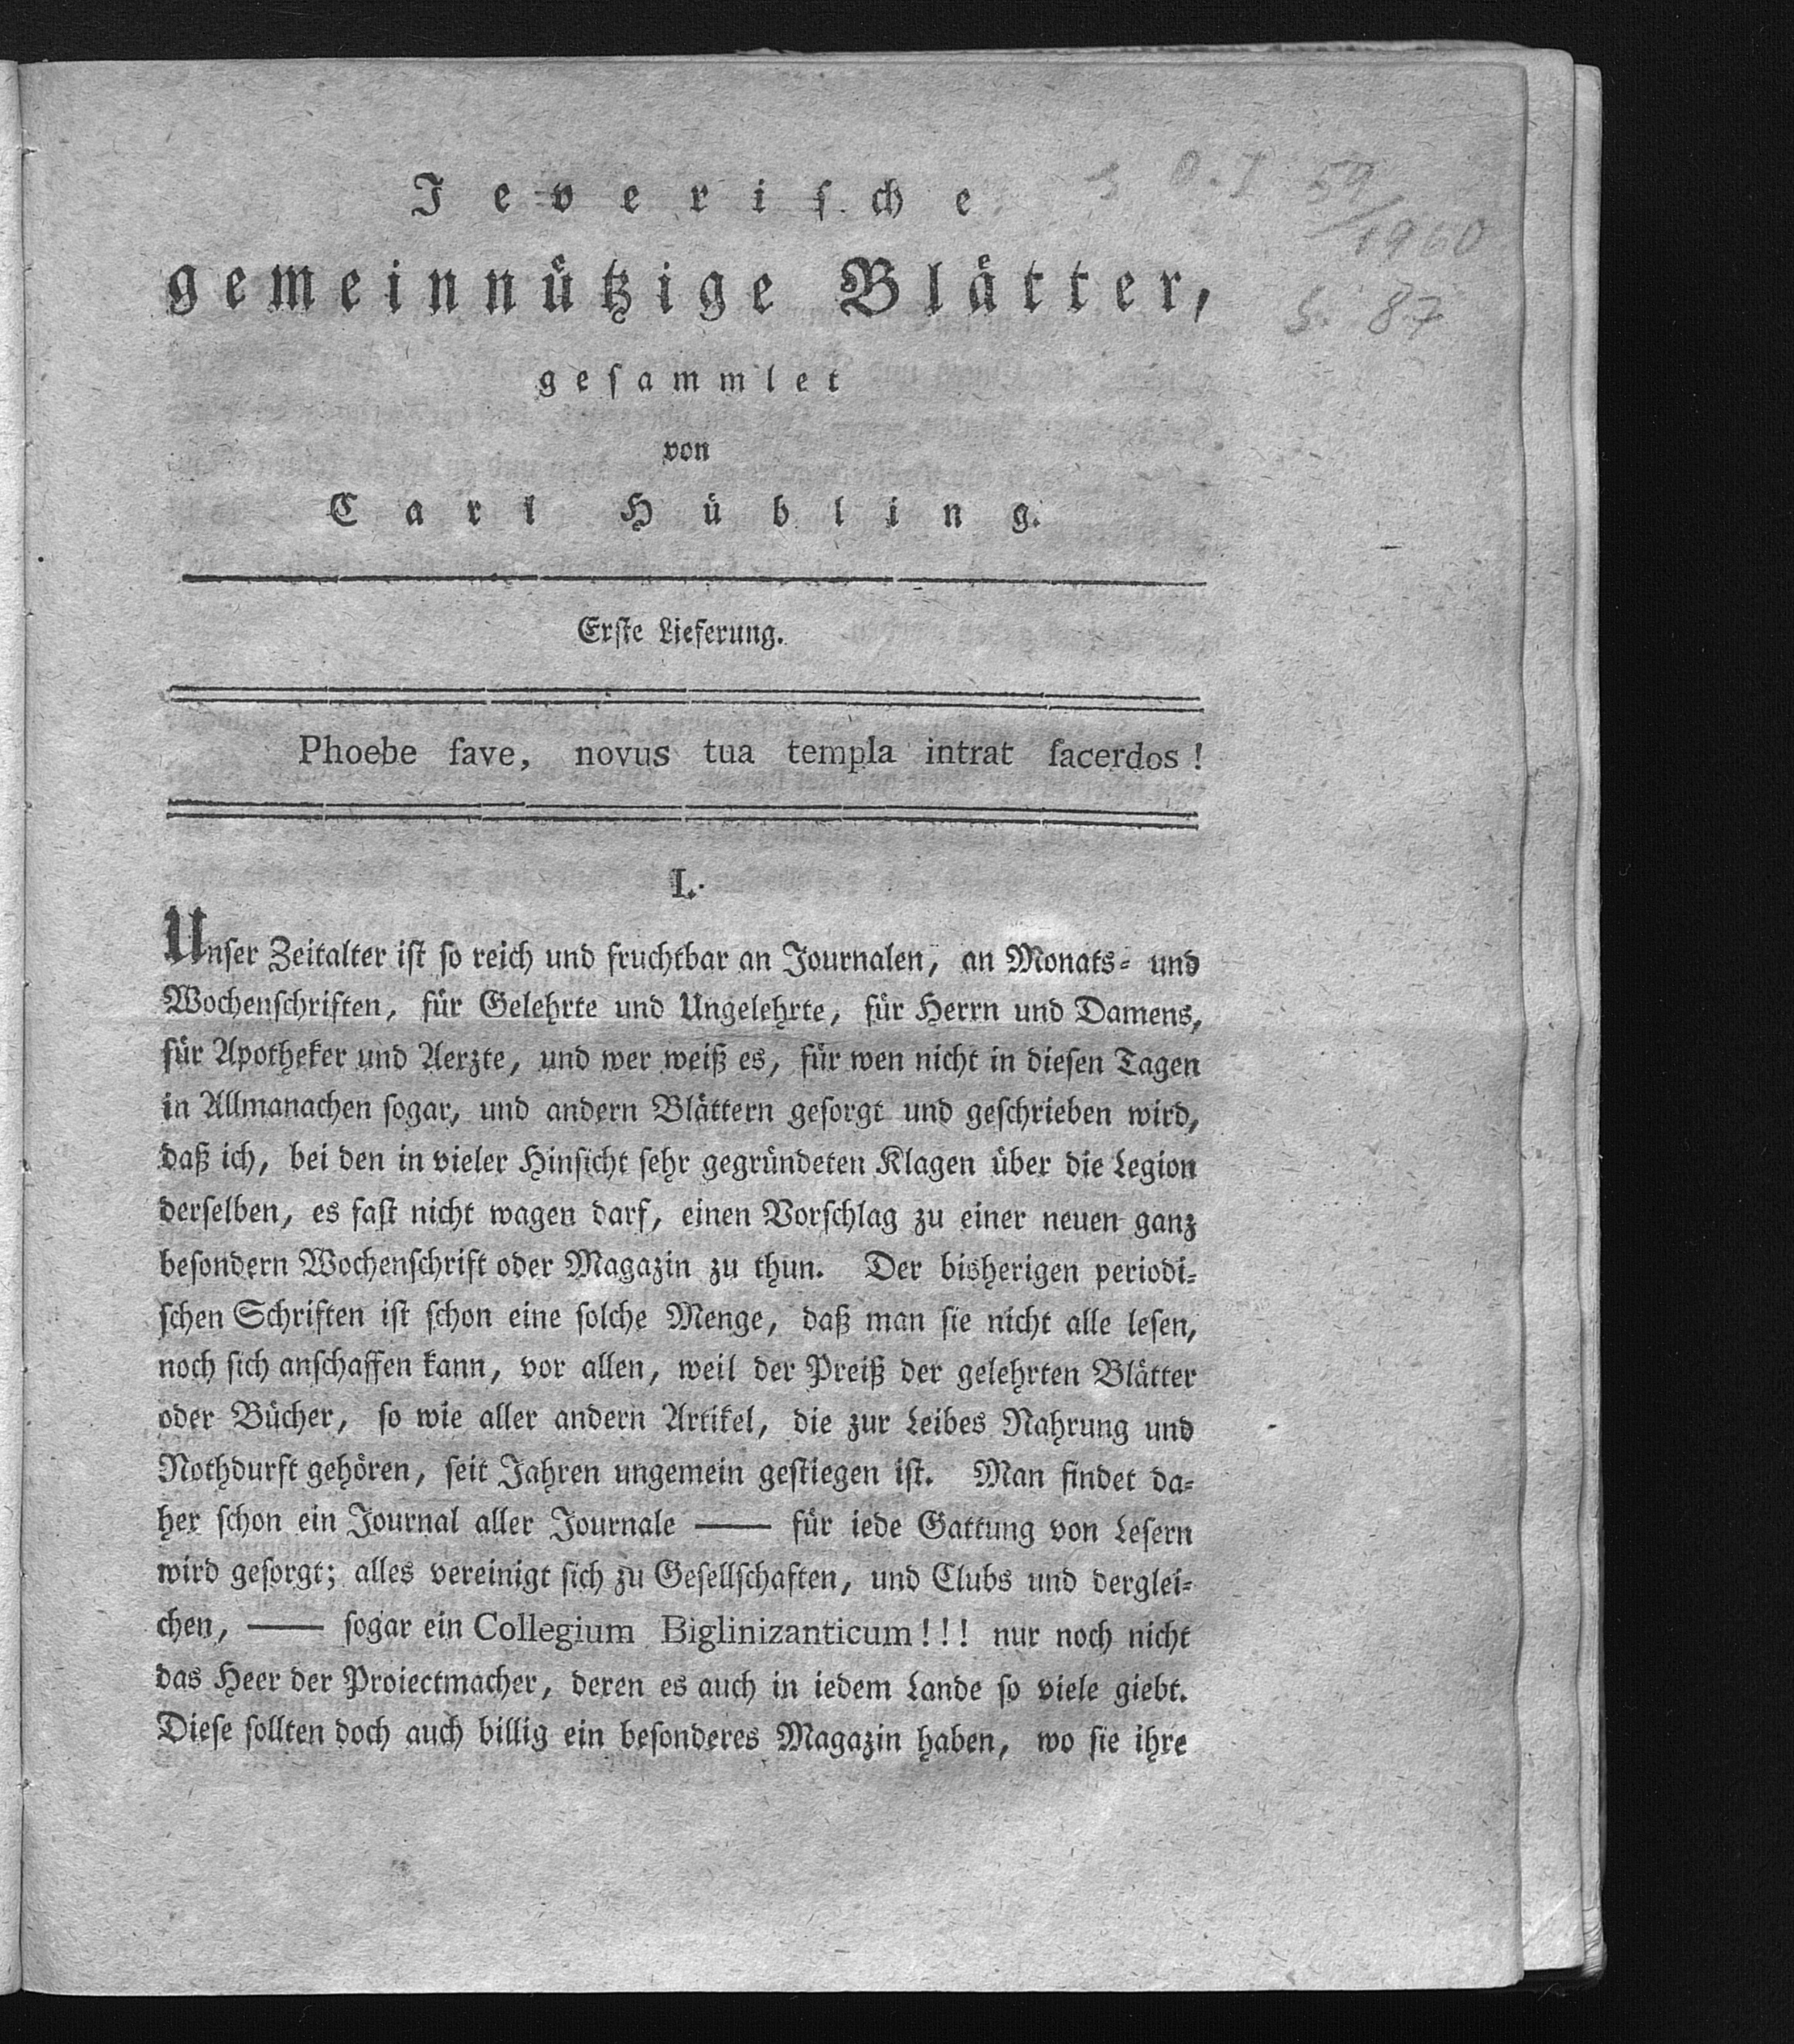 Jeverische
gemeinnützige Blätter,
gesammlet
von
Carl Hübling.
Erste Lieferung.
Phoebe fave, novus tua templa intrat ſacerdos!
I.
Unſer Zeitalter iſt ſo reich und fruchtbar an Journalen, an Monats- und
Wochenſchriften, für Gelehrte und Ungelehrte, für Herrn und Damens,
für Apotheker und Aerzte, und wer weiß es, für wen nicht in dieſen Tagen
in Allmanachen ſogar, und andern Blättern geſorgt und geſchrieben wird,
daß ich, bei den in vieler Hinſicht ſehr gegründeten Klagen über die Legion
derſelben, es faſt nicht wagen darf, einen Vorſchlag zu einer neuen ganz
beſondern Wochenſchrift oder Magazin zu thun. Der bisherigen periodi-
ſchen Schriften iſt ſchon eine ſolche Menge, daß man ſie nicht alle leſen,
noch ſich anſchaffen kann, vor allen, weil der Preiß der gelehrten Blätter
oder Bücher, ſo wie aller andern Artikel, die zur Leibes Nahrung und
Nothdurft gehören, ſeit Jahren ungemein geſtiegen iſt. Man findet da-
her ſchon ein Journal aller Journale —— für iede Gattung von Leſern
wird geſorgt; alles vereinigt ſich zu Geſellſchaften, und Clubs und derglei-
chen, —— ſogar ein Collegium Biglinizanticum!!! nur noch nicht
das Heer der Proiectmacher, deren es auch in iedem Lande ſo viele giebt.
Dieſe ſollten doch auch billig ein beſonderes Magazin haben, wo ſie ihre
O. J 59
/1960
S. 87